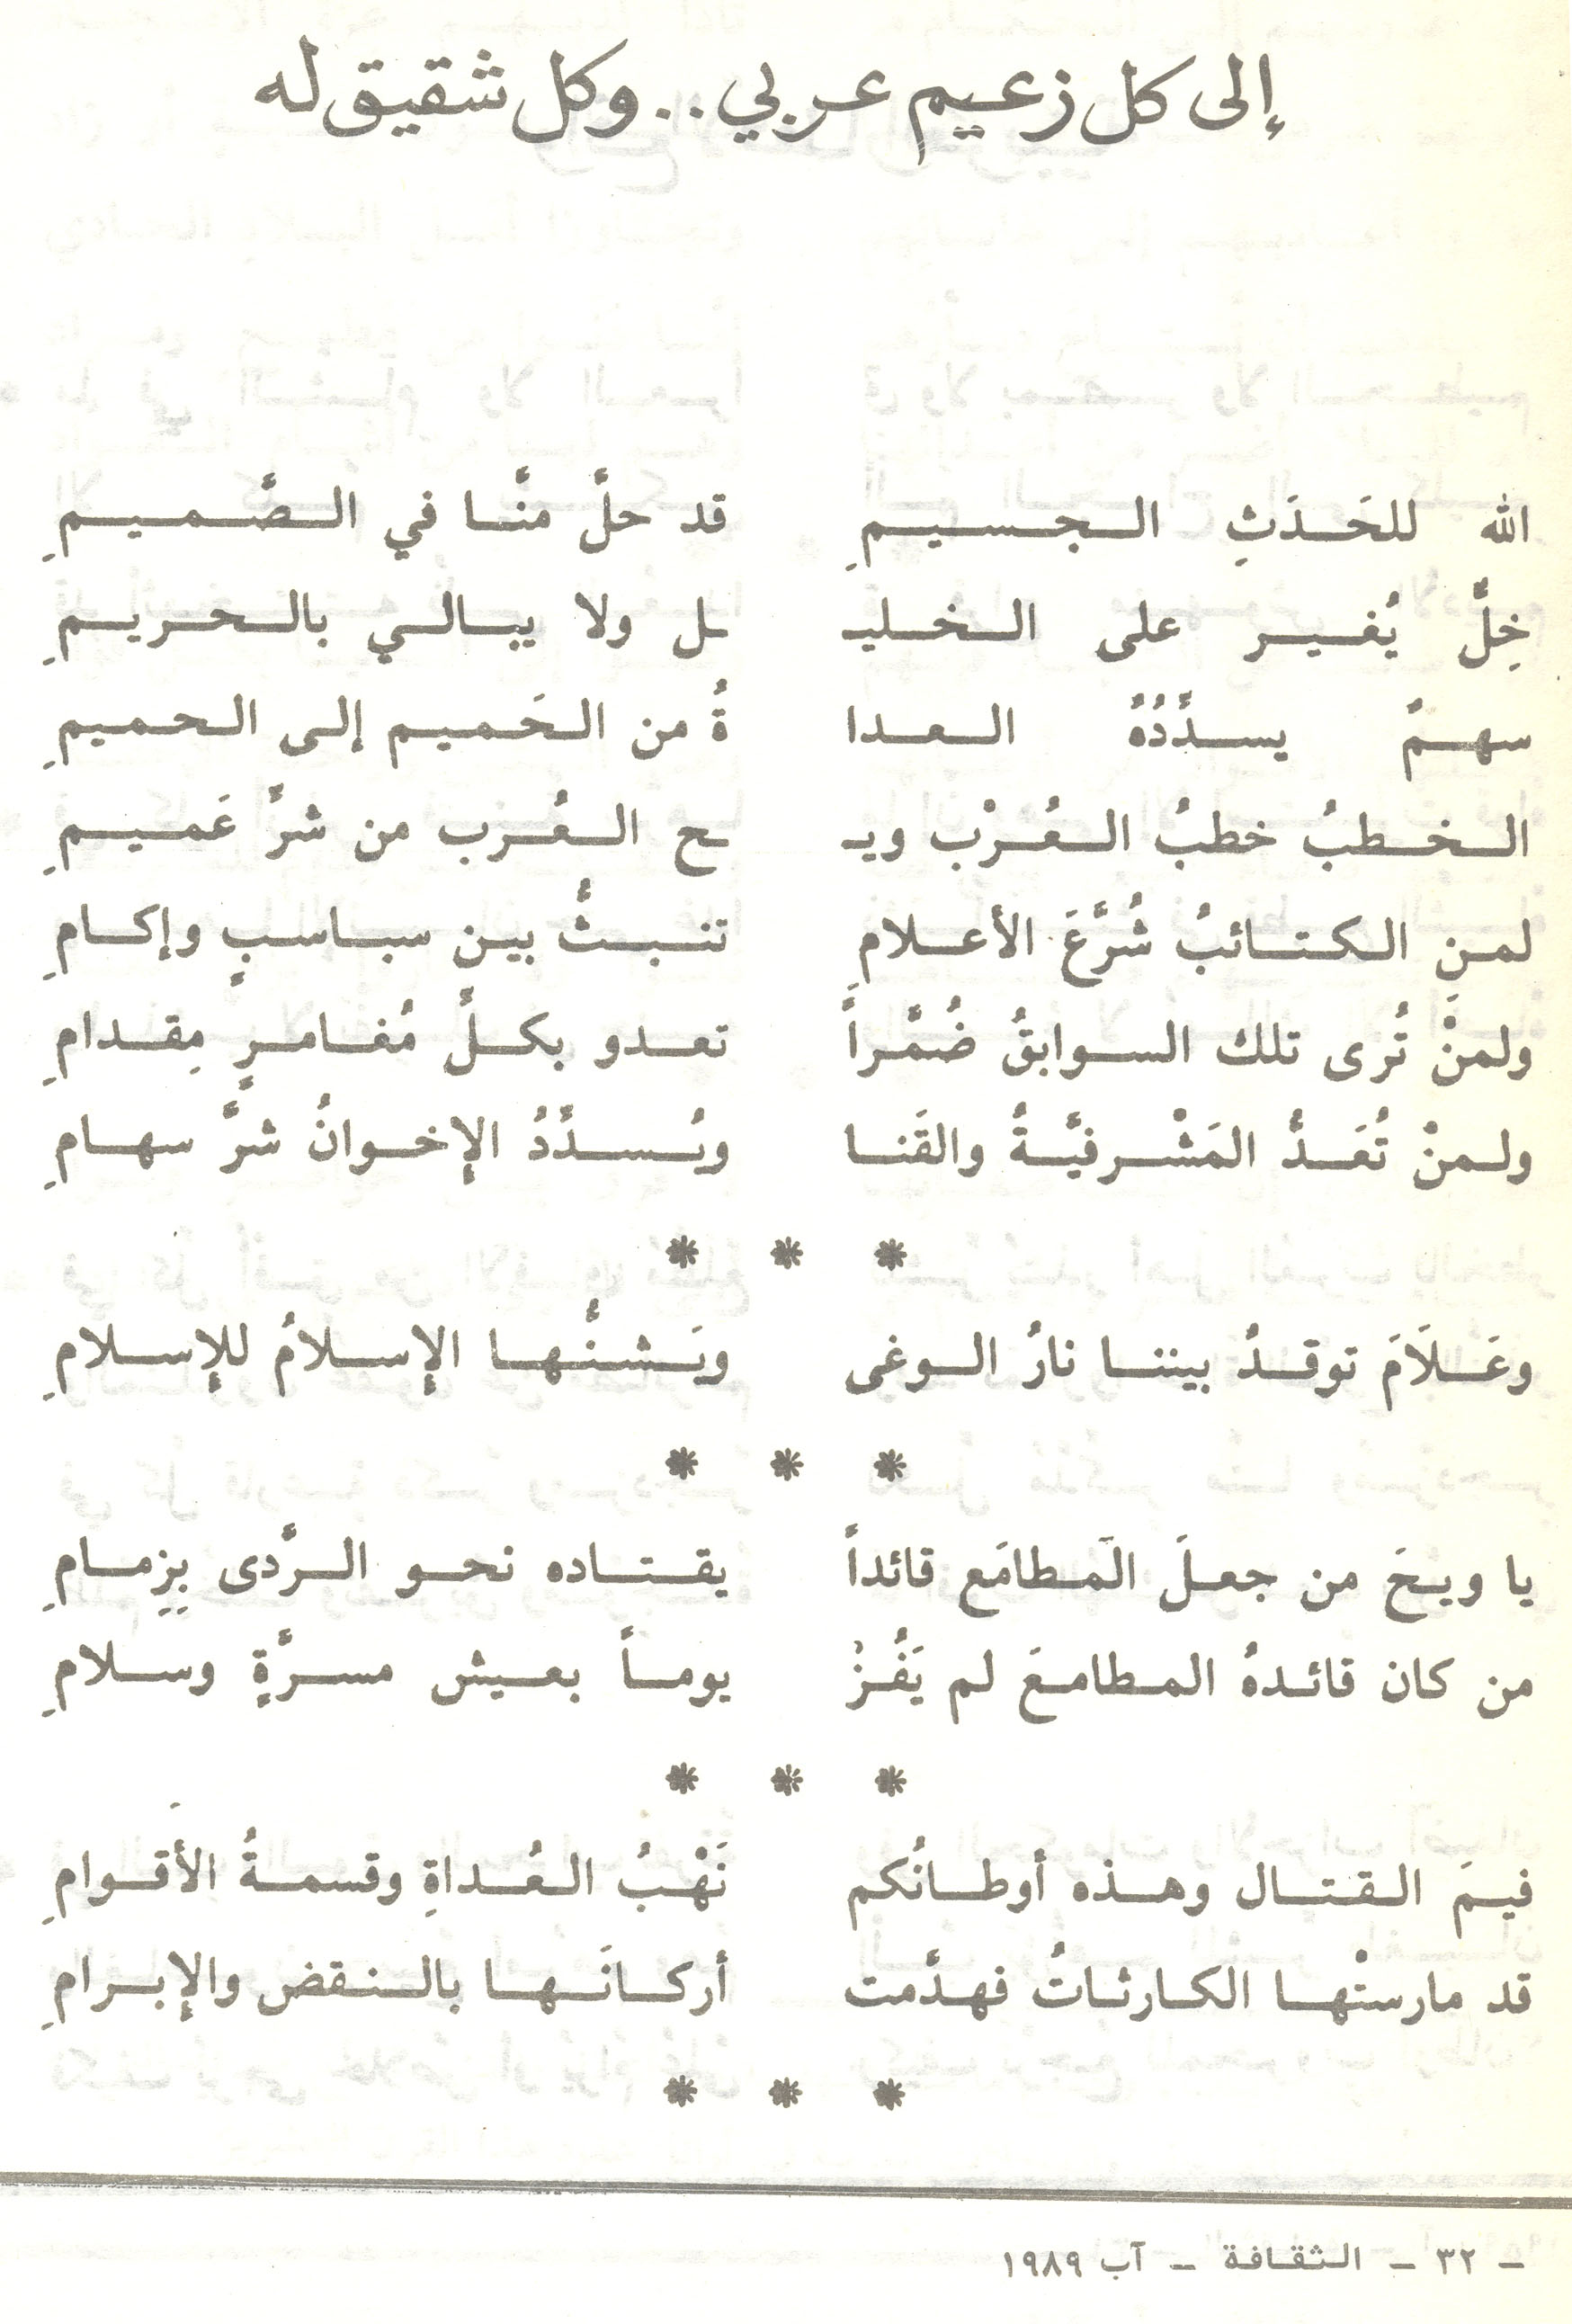 إلى كل زعيم عربي .. وكل شقيق له
الله للحَدَثِ الجسيمِ قد حلَّ منَّا في الصَّميمِ
خِلٌّ يُغير على الخليـ ـل ولا يبالي بالحريمِ
سهمٌ يسدِّدُهُ العدا ةُ من الحَميم إلى الحميمِ
الخطبُ خطبُ العُرْب ويـ ـح العُرب من شرٍّ عَميمِ
لمنِ الكتائبُ شُرَّعَ الأعلامِ تنبثُّ بين سباسبٍ وإكامِ
ولمنْ تُرى تلك السوابقُ ضُمَّراً تعدو بكلِّ مُغامرٍ مِقدامِ
ولمنْ تُعَدُّ المَشْرفيَّةُ والقَنا ويُسدِّدُ الإخوانُ شرَّ سهامِ
* * *
وعَلَامَ توقدُ بيننا نارُ الوغى ويَشنُّها الإسلامُ للإسلامِ
* * *
يا ويحَ من جعلَ المَطامَع قائداً يقتاده نحو الرَّدى بِزِمامِ
من كان قائدهُ المطامعَ لم يَفُزْ يوماً بعيش مسرَّةٍ وسلامِ
* * *
فيمَ القتال وهذه أوطانُكم نَهْبُ العُداةِ وقسمةُ الأقوامِ
قد مارستْها الكارثاتُ فهدَّمت أركانَها بالنقض والإبرامِ
* * *
– ٣٢ – الثقافة – آب ١٩٨٩